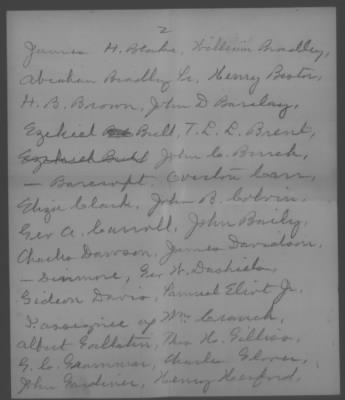 2
James H. Blake, William Bradley,
Abraham Bradley Jr. Henry Bestor,
H. B. Brown, John D Barclay,
Ezekiel Bull, T. L. L. Brent,
John C. Burch,
- Barcroft. Overton Carr,
Eliza Clark, John B. Colvin,
Geo A. Carroll, John Baily,
Charles Dawson, James Davidson,
- Dinmore, Geo W. Dashiels,
Gideon Davis, Samuel Eliot Jr.
assignee of Wm Cranch,
Albert Gallatin, Thos H. Gilliss,
G. C. Grammar, Charles Glover,
John Gardiner, Henry Herford,